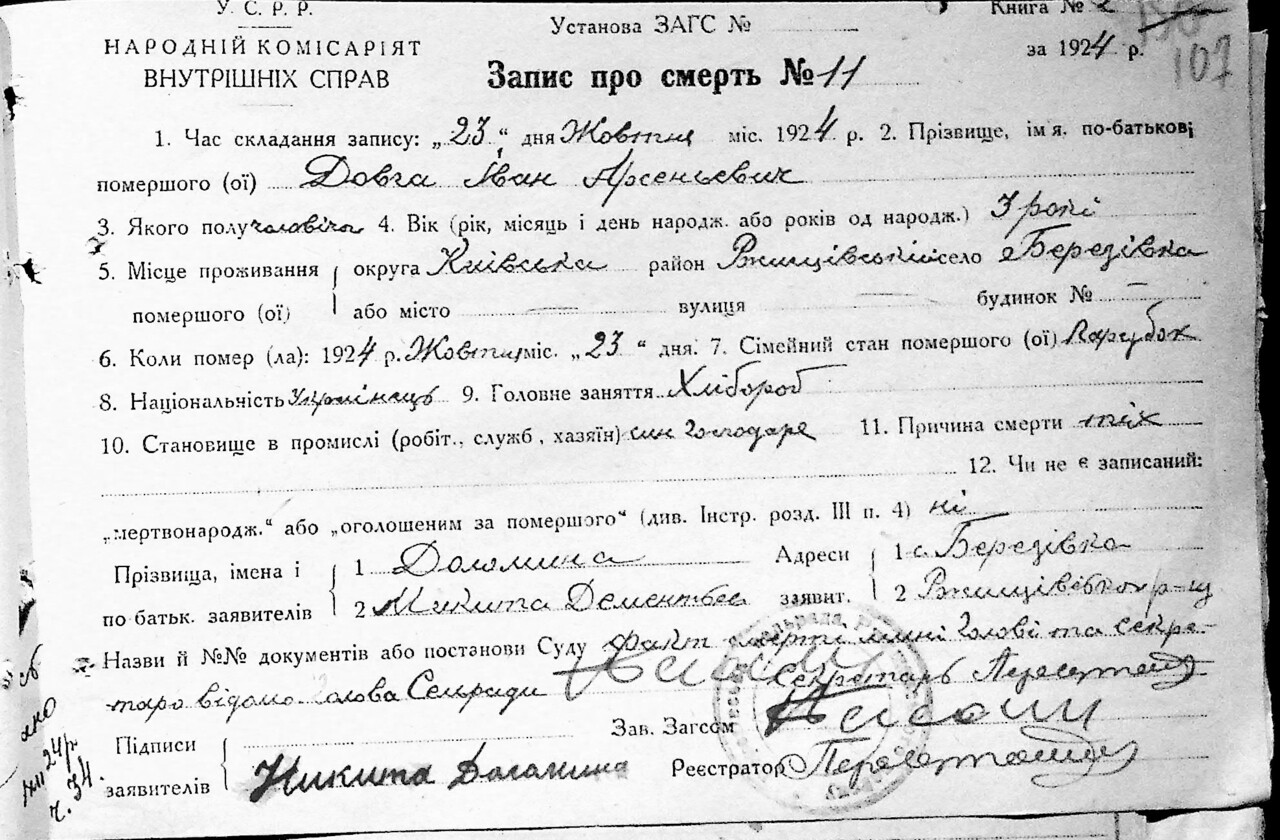 У. С. Р. Р.
НАРОДНІЙ КОМІСАРІЯТ
ВНУТРІШНІХ СПРАВ
Установа ЗАГС №
Книга № 2
за 1924 р.
107
Запис про смерть № 11
1. Час складання запису: „23“ дня Жовтня міс. 1924 р. 2. Прізвище, ім'я, по-батькові
помершого (ої) Довга Іван Арсеньевич
3. Якого полу чоловіча 4. Вік (рік, місяць і день народж. або років од народж.) 3 рокі
5. Місце проживання округа Київська район Ржищівський село Березівка
помершого (ої) або місто вулиця будинок №
6. Коли помер (ла): 1924 р. Жовтня міс. „23“ дня. 7. Сімейний стан помершого (ої) Парубок
8. Національність Українець 9. Головне заняття Хлібороб
10. Становище в промислі (робіт., служб, хазяїн) син Господаре 11. Причина смерти
12. Чи не є записаний:
„мертвонародж.“ або „оголошеним за помершого“ (див. Інстр. розд. III п. 4) ні
Прізвища, імена і 1 Адреси 1 с. Березівка
по батьк. заявителів 2 Микита Дементьев заявит. 2 Ржищівського р-ну
Назви й №№ документів або постанови Суду факт смерти мині Голові та секре-
таро відомо Голова Сельради Секретарь
Підписи Зав. Загсом
заявителів Никита Реєстратор
24 р.
ч. 34.